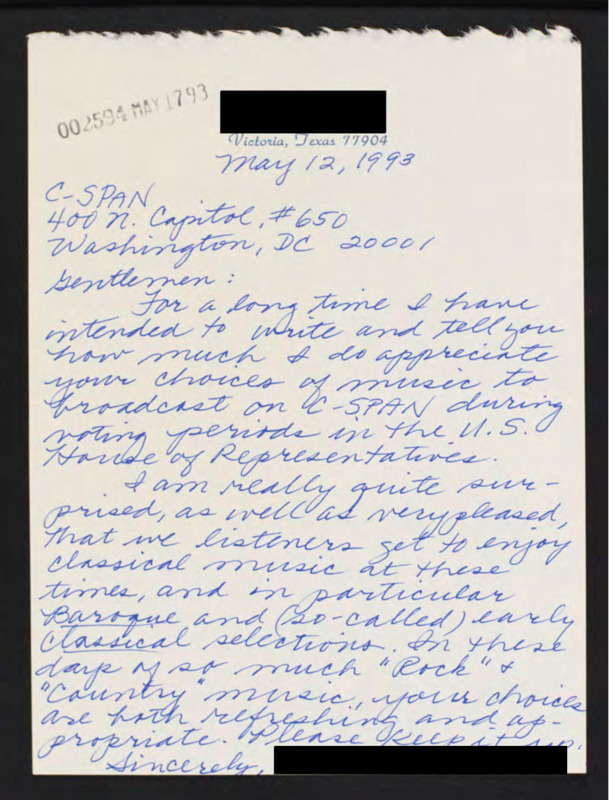 002594 MAY 1793
Victoria, Texas 77904
May 12, 1993
C-SPAN
400 N. Capitol, #650
Washington, DC 20001
Gentlemen:
For a long time I have
intended to write and tell you
how much I do appreciate
your choices of music to
broadcast on C-SPAN during
voting periods in the U.S.
House of Representatives.
I am really quite sur-
prised, as well as very pleased,
that we listeners get to enjoy
classical music at these
times, and in particular
Baroque and (so-called) early
Classical selections. In these
days of so much "Rock" &
"Country" music, your choices
are both refreshing and ap-
propriate. Please keep it up.
Sincerely,